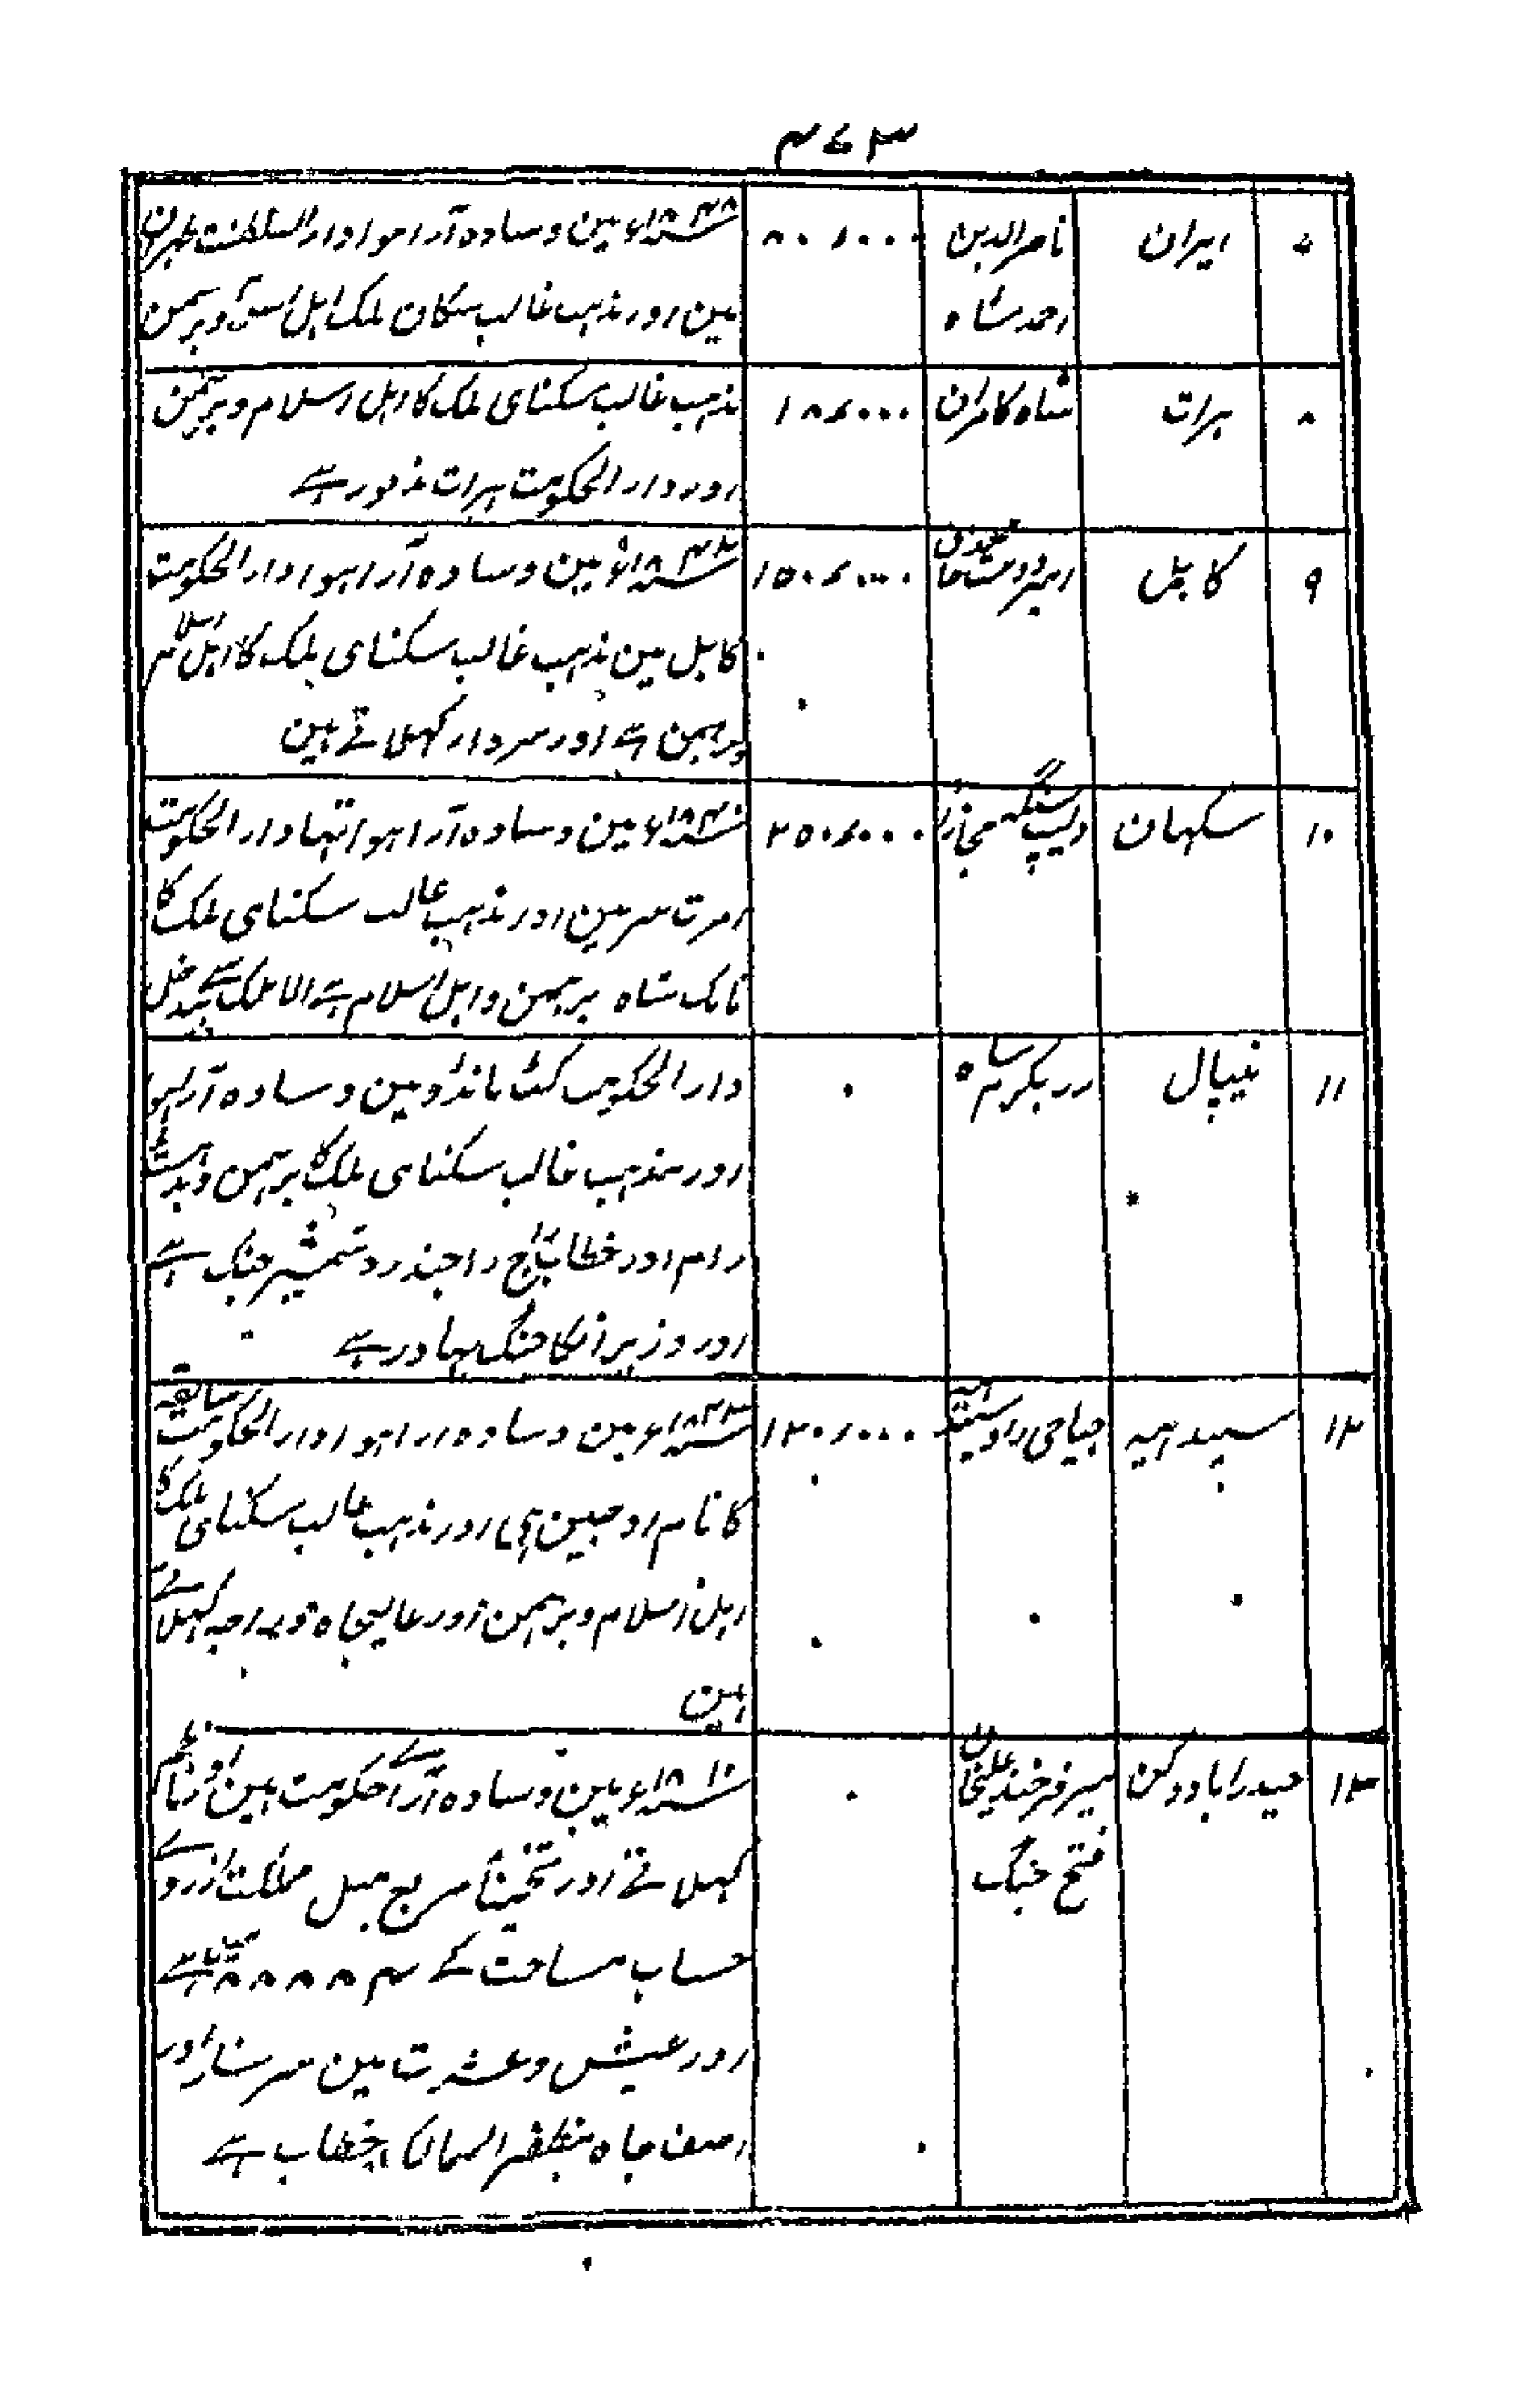 ۴۷۳
۷ ایران ناصرالدین ۸۰،۰۰۰ ۱۸۴۸ء مین وساده آرا ہوا دارالسلطنت طہران
احمد شاه مین اور مذہب غالب سکان ملک اہل وبرہمن
۸ ہرات شاه کامران ۱۸،۰۰۰ مذہب غالب سکنای ملک کا اہل اسلام وبرہمن
اور دارالحکومت ہرات مذکور ہے
۹ کابل امیر دوستمحمد خان ۱۵۰،۰۰۰ ۱۸۴۲ء مین وساده آرا ہوا دارالحکومت
کابل مین مذہب غالب سکنای ملک کا اہل اسلام
وبرہمن ہے اور سردار کہلاتے ہین
۱۰ سکہان دلیپ سنگہ ۲۵۰،۰۰۰ ۱۸۴۰ء مین وساده آرا ہوا تہا دارالحکومت
امرت سر مین اور مذہب غالب سکنای ملک کا
نانک شاه برہمن واہل اسلام ہے الا ملک سے بیدخل
۱۱ نیپال بکرم ساه ۰ دارالحکومت کٹ مانڈو مین وساده آرا ہوا
اور مذہب غالب سکنای ملک کا برہمن
رام اور خطاب شمشیر جنگ ہے
اور وزیر انکا جنگ بہادر ہے
۱۲ سیندہیہ جیاجی راو سیندہیہ ۱۲۰،۰۰۰ ۱۸۴۳ء مین وساده آرا ہوا دارالحکومت سابقہ
کا نام اوجین ہی اور مذہب غالب سکنای ملک کا
اہل اسلام وبرہمن اور عالیجاه کہلاتے
ہین
۱۳ حیدراباد دکن میر فرخنده علیخان ۰ ۱۸۱۰ء مین وساده آرائے حکومت ہین اور ناظم
فتح جنگ کہلاتے اور تخمیناً مربع میل مملکت ازروے
حساب مساحت کے ۸۸۸۸۴ ہے
اور عیش وعشرت مین سرشار اور
آصف جاه مظفر الممالک خطاب ہے